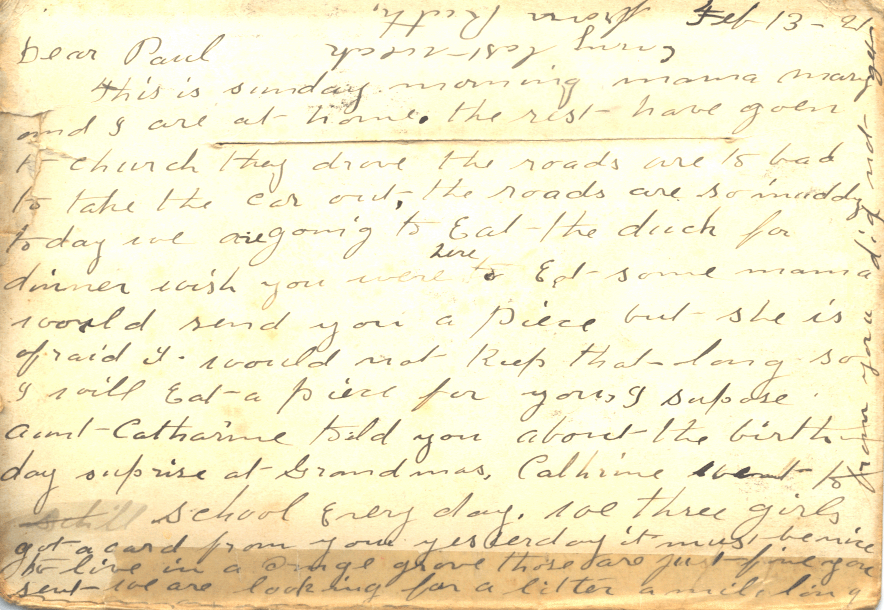 Feb 13 - 21
Dear Paul
This is sunday morning mama mary
and I are at home. the rest have goen
to church they drove the roads are to bad
to take the car out, the roads are so muddy
today we are going to Eat the duck for
dinner wish you were here to Eat some mama
would send you a piece but she is
afraid it would not keep that long so
I will Eat a piece for you, I supose
aunt Catharine told you about the birth
day suprise at Grandmas, Cathrine went to
school Every day. we three girls
got a card from you yesterday it must be nice
to live in a ornge grove those are just fine you
sent we are looking for a litter a mile long
from you did not get
from Ruth,